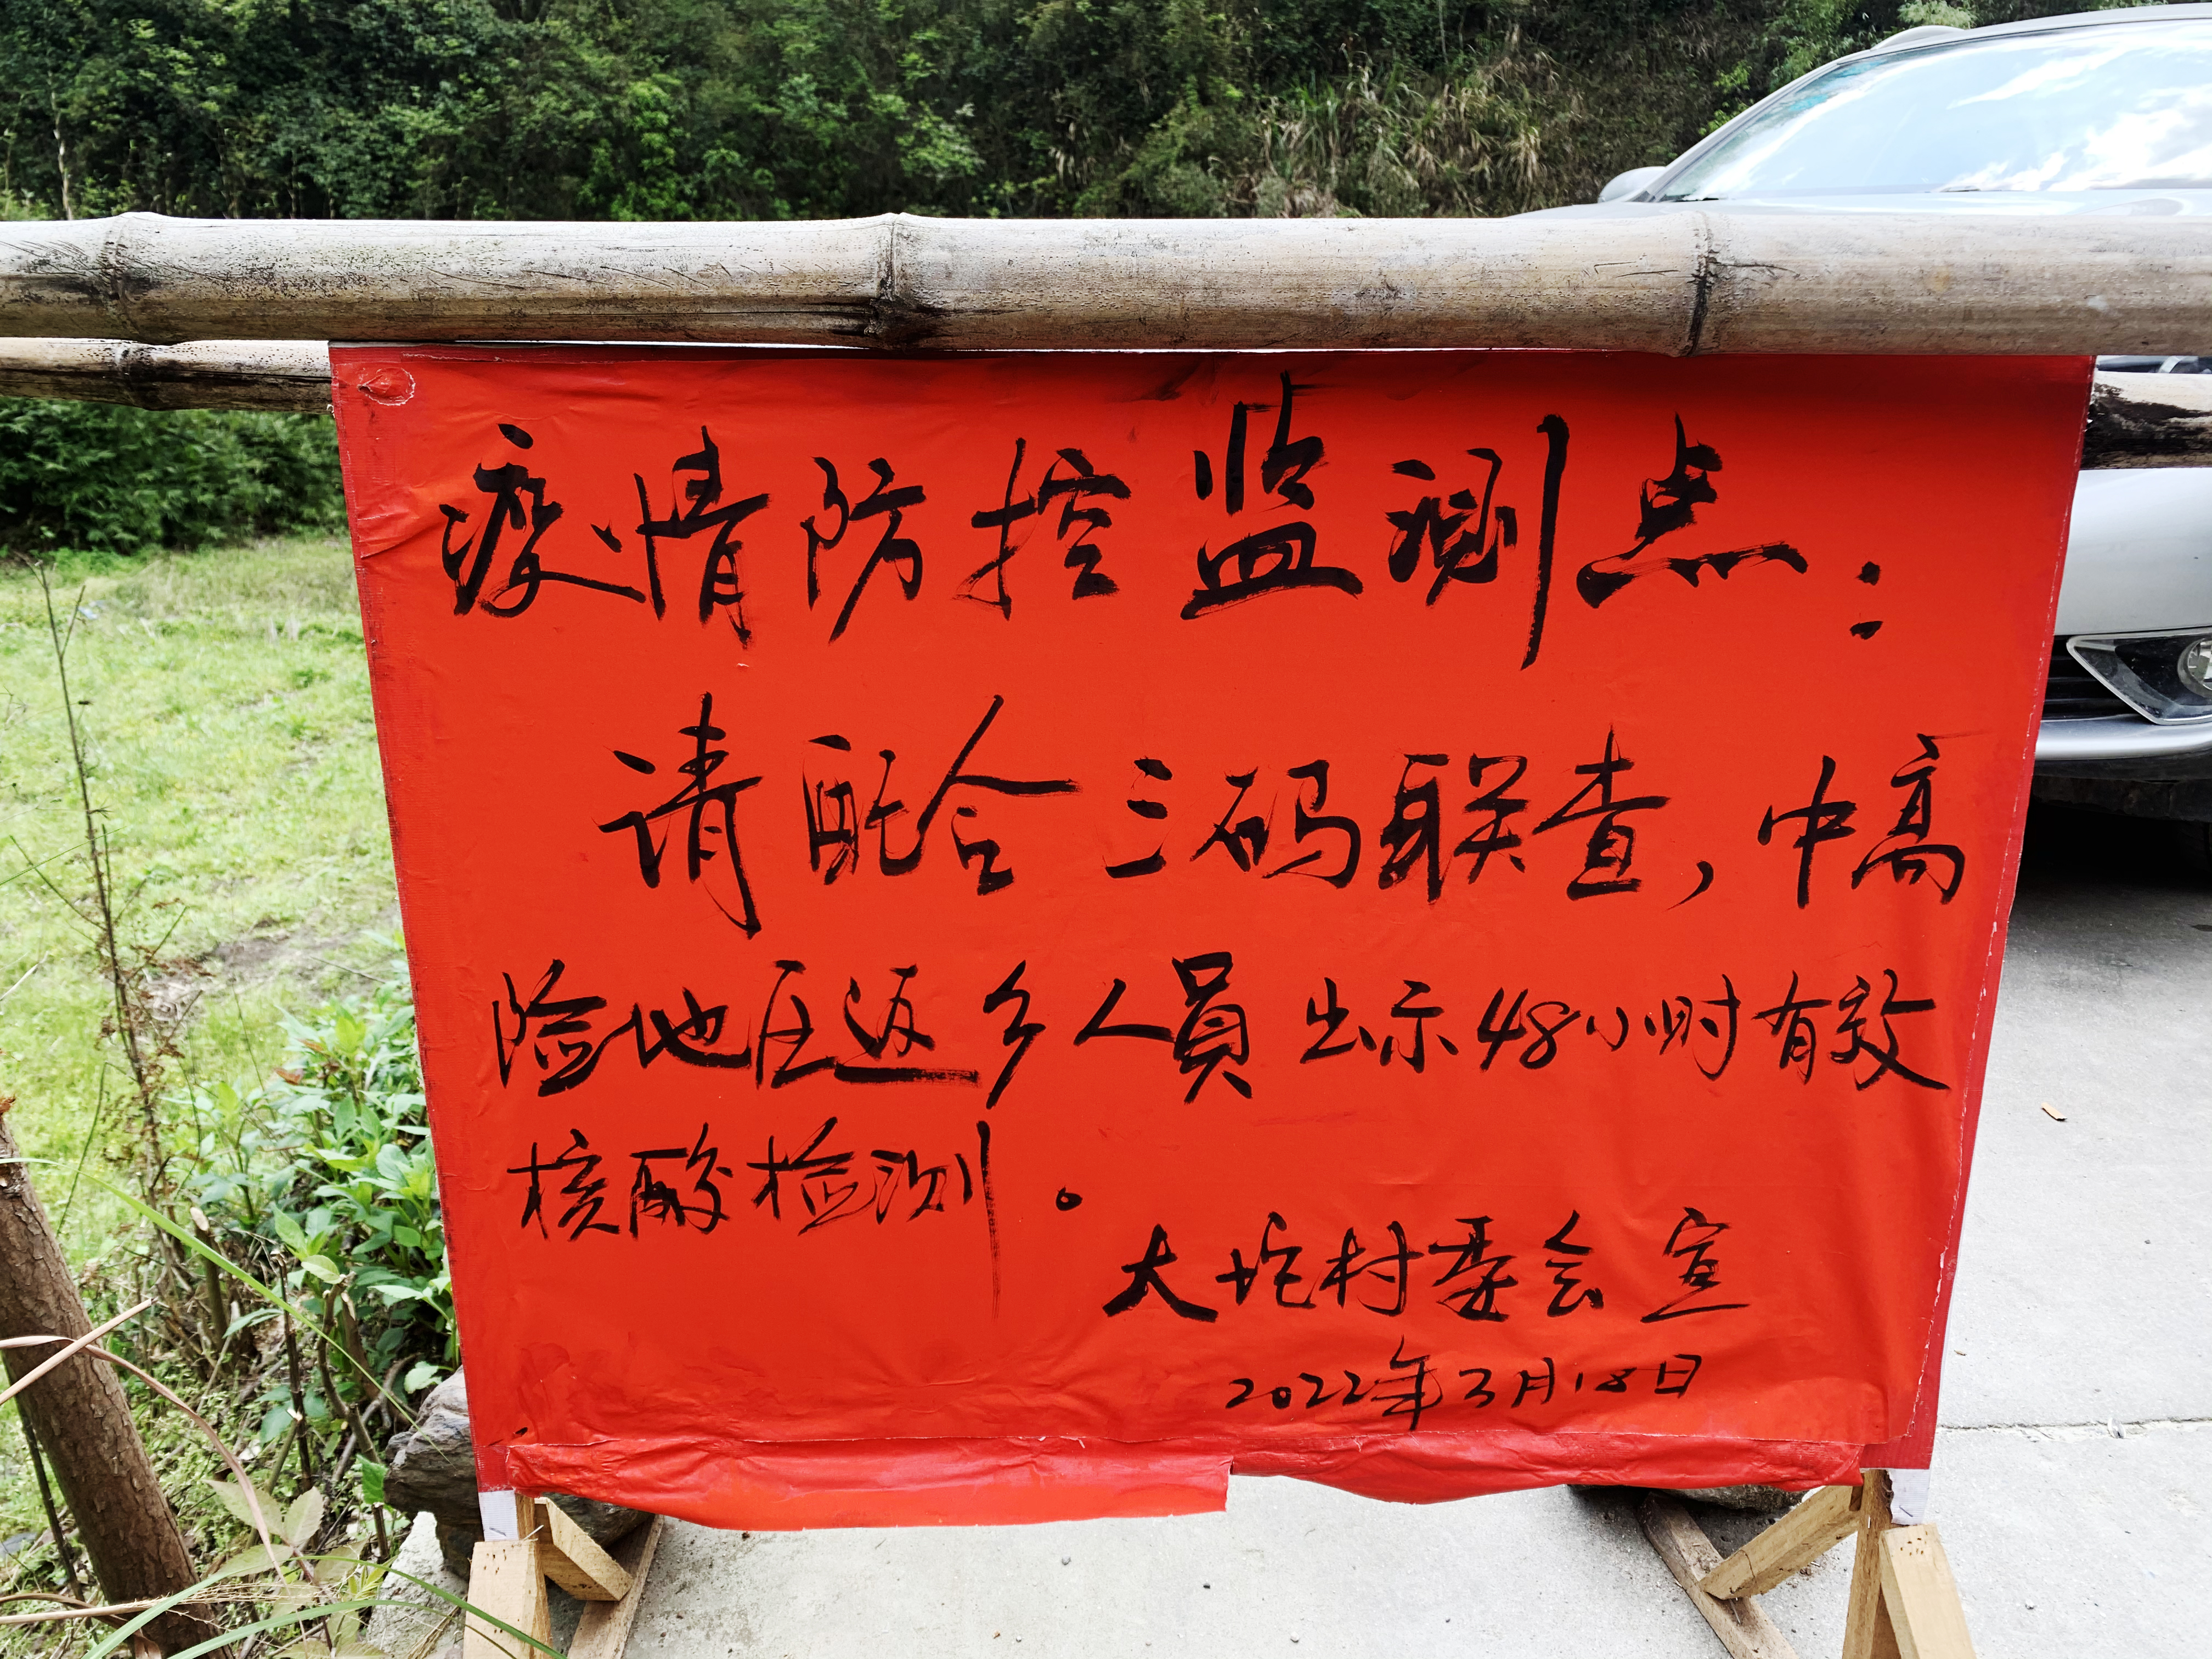 疫情防控监测点：
请配合三码联查，中高
险地区返乡人員出示48小时有效
核酸检测。
大坨村委会宣
2022年3月18日